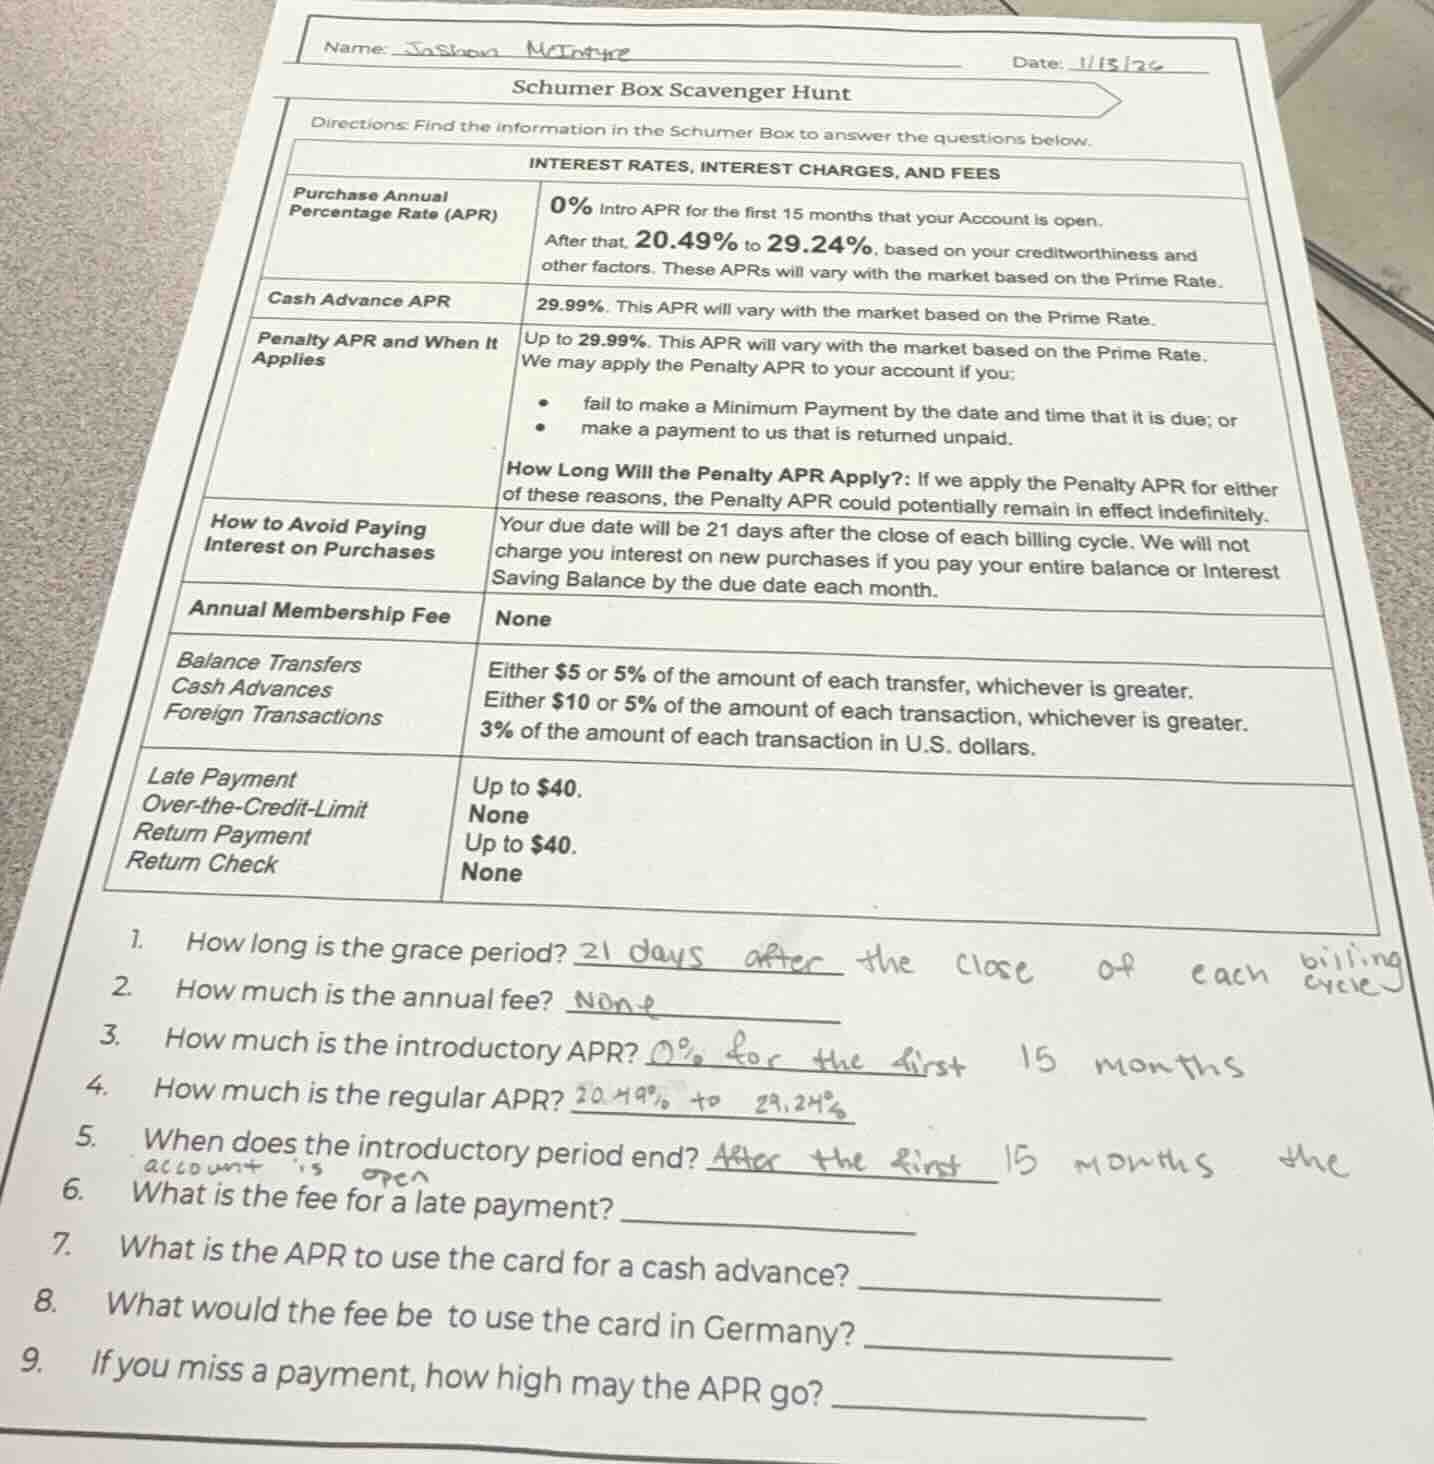 Name: JaShon McIntyre Date: 1/13/26
Schumer Box Scavenger Hunt
Directions: Find the information in the Schumer Box to answer the questions below.
INTEREST RATES, INTEREST CHARGES, AND FEES
Purchase Annual
Percentage Rate (APR)
0% Intro APR for the first 15 months that your Account is open.
After that, 20.49% to 29.24%, based on your creditworthiness and
other factors. These APRs will vary with the market based on the Prime Rate.
Cash Advance APR
29.99%. This APR will vary with the market based on the Prime Rate.
Penalty APR and When It
Applies
Up to 29.99%. This APR will vary with the market based on the Prime Rate.
We may apply the Penalty APR to your account if you:
• fail to make a Minimum Payment by the date and time that it is due; or
• make a payment to us that is returned unpaid.
How Long Will the Penalty APR Apply?: If we apply the Penalty APR for either
of these reasons, the Penalty APR could potentially remain in effect indefinitely.
How to Avoid Paying
Interest on Purchases
Your due date will be 21 days after the close of each billing cycle. We will not
charge you interest on new purchases if you pay your entire balance or Interest
Saving Balance by the due date each month.
Annual Membership Fee
None
Balance Transfers
Cash Advances
Foreign Transactions
Either $5 or 5% of the amount of each transfer, whichever is greater.
Either $10 or 5% of the amount of each transaction, whichever is greater.
3% of the amount of each transaction in U.S. dollars.
Late Payment
Over-the-Credit-Limit
Return Payment
Return Check
Up to $40.
None
Up to $40.
None
1. How long is the grace period? 21 days after the close of each billing
cycle
2. How much is the annual fee? None
3. How much is the introductory APR? 0% for the first 15 months
4. How much is the regular APR? 20.49% to 29.24%
5. When does the introductory period end? After the first 15 months the
account is open
6. What is the fee for a late payment?
7. What is the APR to use the card for a cash advance?
8. What would the fee be to use the card in Germany?
9. If you miss a payment, how high may the APR go?